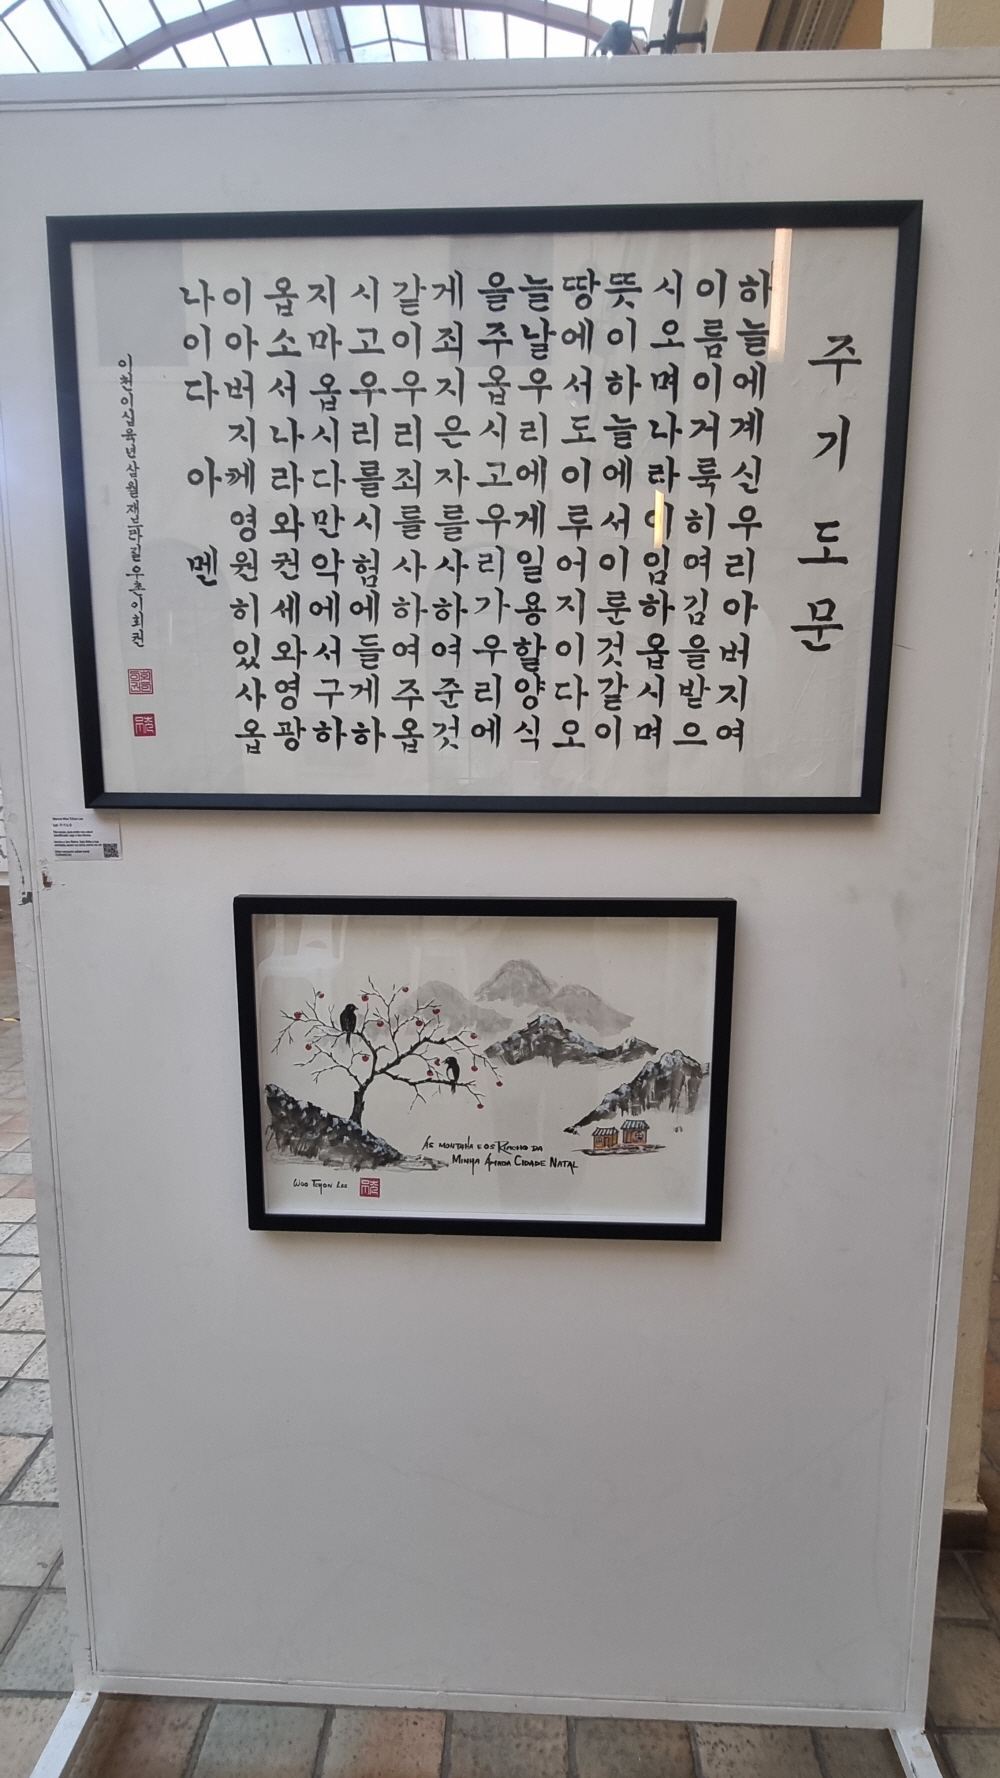 주기도문
하늘에계신우리아버지여
이름이거룩히여김을받으
시오며나라이임하옵시며
뜻이하늘에서이룬것같이
땅에서도이루어지이다오
늘날우리에게일용할양식
을주옵시고우리가우리에
게죄지은자를사하여준것
같이우리죄를사하여주옵
시고우리를시험에들게하
지마옵시다만악에서구하
옵소서나라와권세와영광
이아버지께영원히있사옵
나이다 아멘
이천이십육년삼월재브라질우촌이회권
As MONTANHA E OS RIACHO DA
MINHA AMADA CIDADE NATAL
WOO TCHON LEE